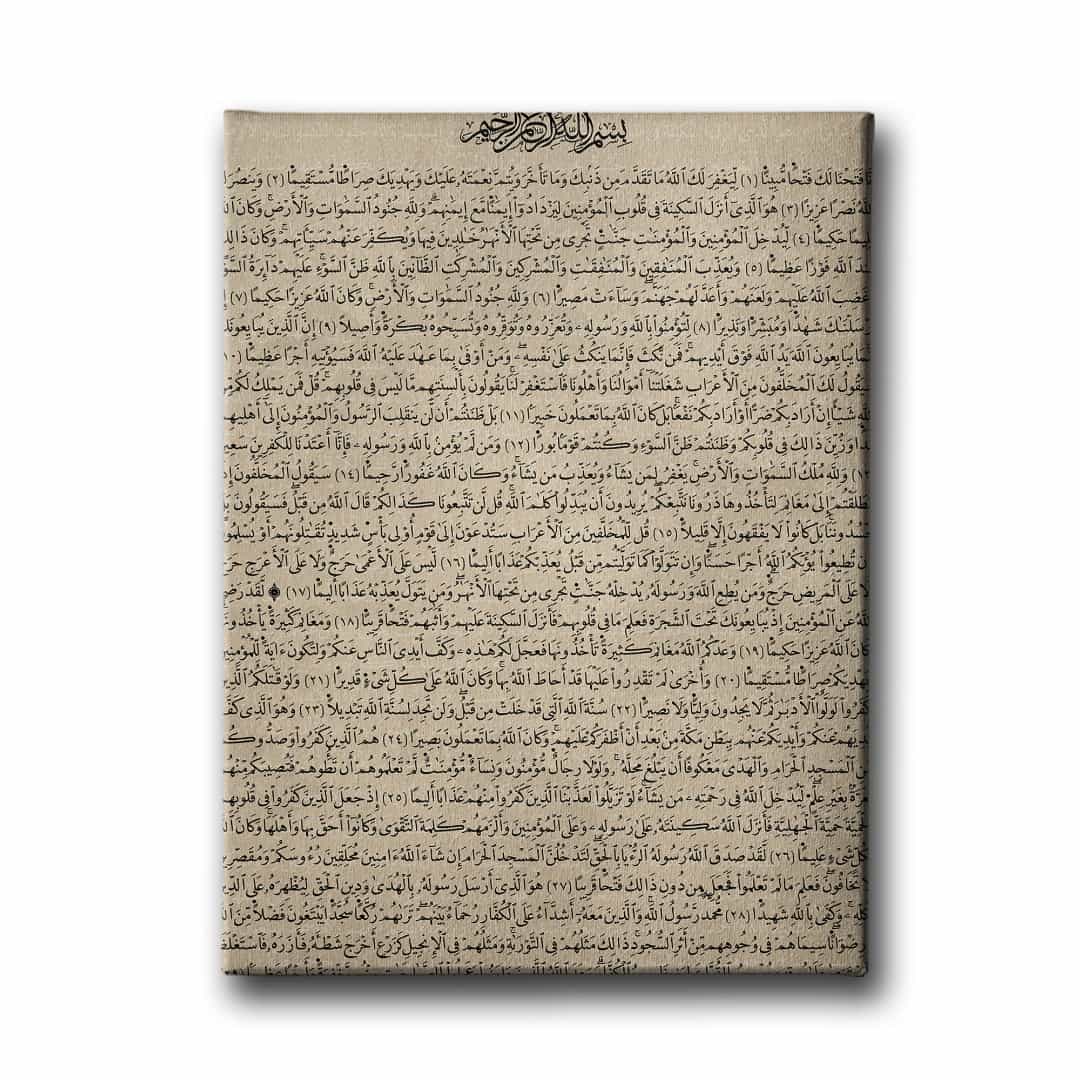 بِسْمِ اللَّهِ الرَّحْمَنِ الرَّحِيمِ
نَّا فَتَحْنَا لَكَ فَتْحًا مُّبِينًا (١) لِّيَغْفِرَ لَكَ ٱللَّهُ مَا تَقَدَّمَ مِن ذَنۢبِكَ وَمَا تَأَخَّرَ وَيُتِمَّ نِعْمَتَهُۥ عَلَيْكَ وَيَهْدِيَكَ صِرَٰطًا مُّسْتَقِيمًا (٢) وَيَنصُرَ
ٱللَّهُ نَصْرًا عَزِيزًا (٣) هُوَ ٱلَّذِىٓ أَنزَلَ ٱلسَّكِينَةَ فِى قُلُوبِ ٱلْمُؤْمِنِينَ لِيَزْدَادُوٓا۟ إِيمَٰنًا مَّعَ إِيمَٰنِهِمْ ۗ وَلِلَّهِ جُنُودُ ٱلسَّمَٰوَٰتِ وَٱلْأَرْضِ ۚ وَكَانَ
لِيمًا حَكِيمًا (٤) لِّيُدْخِلَ ٱلْمُؤْمِنِينَ وَٱلْمُؤْمِنَٰتِ جَنَّٰتٍ تَجْرِى مِن تَحْتِهَا ٱلْأَنْهَٰرُ خَٰلِدِينَ فِيهَا وَيُكَفِّرَ عَنْهُمْ سَيِّـَٔاتِهِمْ ۚ وَكَانَ ذَٰلِ
ندَ ٱللَّهِ فَوْزًا عَظِيمًا (٥) وَيُعَذِّبَ ٱلْمُنَٰفِقِينَ وَٱلْمُنَٰفِقَٰتِ وَٱلْمُشْرِكِينَ وَٱلْمُشْرِكَٰتِ ٱلظَّآنِّينَ بِٱللَّهِ ظَنَّ ٱلسَّوْءِ ۚ عَلَيْهِمْ دَآئِرَةُ ٱلسَّوْ
غَضِبَ ٱللَّهُ عَلَيْهِمْ وَلَعَنَهُمْ وَأَعَدَّ لَهُمْ جَهَنَّمَ ۖ وَسَآءَتْ مَصِيرًا (٦) وَلِلَّهِ جُنُودُ ٱلسَّمَٰوَٰتِ وَٱلْأَرْضِ ۚ وَكَانَ ٱللَّهُ عَزِيزًا حَكِيمًا (٧)
رْسَلْنَٰكَ شَٰهِدًا وَمُبَشِّرًا وَنَذِيرًا (٨) لِّتُؤْمِنُوا۟ بِٱللَّهِ وَرَسُولِهِۦ وَتُعَزِّرُوهُ وَتُوَقِّرُوهُ وَتُسَبِّحُوهُ بُكْرَةً وَأَصِيلًا (٩) إِنَّ ٱلَّذِينَ يُبَايِعُونَكَ
نَّمَا يُبَايِعُونَ ٱللَّهَ يَدُ ٱللَّهِ فَوْقَ أَيْدِيهِمْ ۚ فَمَن نَّكَثَ فَإِنَّمَا يَنكُثُ عَلَىٰ نَفْسِهِۦ ۖ وَمَنْ أَوْفَىٰ بِمَا عَٰهَدَ عَلَيْهُ ٱللَّهَ فَسَيُؤْتِيهِ أَجْرًا عَظِيمًا (١٠
سَيَقُولُ لَكَ ٱلْمُخَلَّفُونَ مِنَ ٱلْأَعْرَابِ شَغَلَتْنَآ أَمْوَٰلُنَا وَأَهْلُونَا فَٱسْتَغْفِرْ لَنَا ۚ يَقُولُونَ بِأَلْسِنَتِهِم مَّا لَيْسَ فِى قُلُوبِهِمْ ۚ قُلْ فَمَن يَمْلِكُ لَكُم مِّنَ
للَّهِ شَيْـًٔا إِنْ أَرَادَ بِكُمْ ضَرًّا أَوْ أَرَادَ بِكُمْ نَفْعًۢا ۚ بَلْ كَانَ ٱللَّهُ بِمَا تَعْمَلُونَ خَبِيرًۢا (١١) بَلْ ظَنَنتُمْ أَن لَّن يَنقَلِبَ ٱلرَّسُولُ وَٱلْمُؤْمِنُونَ إِلَىٰٓ أَهْلِيهِمْ
دًا وَزُيِّنَ ذَٰلِكَ فِى قُلُوبِكُمْ وَظَنَنتُمْ ظَنَّ ٱلسَّوْءِ وَكُنتُمْ قَوْمًۢا بُورًا (١٢) وَمَن لَّمْ يُؤْمِنۢ بِٱللَّهِ وَرَسُولِهِۦ فَإِنَّآ أَعْتَدْنَا لِلْكَٰفِرِينَ سَعِي
١٣) وَلِلَّهِ مُلْكُ ٱلسَّمَٰوَٰتِ وَٱلْأَرْضِ ۚ يَغْفِرُ لِمَن يَشَآءُ وَيُعَذِّبُ مَن يَشَآءُ ۚ وَكَانَ ٱللَّهُ غَفُورًا رَّحِيمًا (١٤) سَيَقُولُ ٱلْمُخَلَّفُونَ إِذَ
طَلَقْتُمْ إِلَىٰ مَغَانِمَ لِتَأْخُذُوهَا ذَرُونَا نَتَّبِعْكُمْ ۖ يُرِيدُونَ أَن يُبَدِّلُوا۟ كَلَٰمَ ٱللَّهِ ۚ قُل لَّن تَتَّبِعُونَا كَذَٰلِكُمْ قَالَ ٱللَّهُ مِن قَبْلُ ۖ فَسَيَقُولُونَ بَ
حْسُدُونَنَا ۚ بَلْ كَانُوا۟ لَا يَفْقَهُونَ إِلَّا قَلِيلًا (١٥) قُل لِّلْمُخَلَّفِينَ مِنَ ٱلْأَعْرَابِ سَتُدْعَوْنَ إِلَىٰ قَوْمٍ أُو۟لِى بَأْسٍ شَدِيدٍ تُقَٰتِلُونَهُمْ أَوْ يُسْلِمُو
ن تُطِيعُوا۟ يُؤْتِكُمُ ٱللَّهُ أَجْرًا حَسَنًا ۖ وَإِن تَتَوَلَّوْا۟ كَمَا تَوَلَّيْتُم مِّن قَبْلُ يُعَذِّبْكُمْ عَذَابًا أَلِيمًا (١٦) لَّيْسَ عَلَى ٱلْأَعْمَىٰ حَرَجٌ وَلَا عَلَى ٱلْأَعْرَجِ حَرَجٌ
لَا عَلَى ٱلْمَرِيضِ حَرَجٌ ۗ وَمَن يُطِعِ ٱللَّهَ وَرَسُولَهُۥ يُدْخِلْهُ جَنَّٰتٍ تَجْرِى مِن تَحْتِهَا ٱلْأَنْهَٰرُ ۖ وَمَن يَتَوَلَّ يُعَذِّبْهُ عَذَابًا أَلِيمًا (١٧) ۞ لَّقَدْ رَضِ
للَّهُ عَنِ ٱلْمُؤْمِنِينَ إِذْ يُبَايِعُونَكَ تَحْتَ ٱلشَّجَرَةِ فَعَلِمَ مَا فِى قُلُوبِهِمْ فَأَنزَلَ ٱلسَّكِينَةَ عَلَيْهِمْ وَأَثَٰبَهُمْ فَتْحًا قَرِيبًا (١٨) وَمَغَانِمَ كَثِيرَةً يَأْخُذُونَ
كَانَ ٱللَّهُ عَزِيزًا حَكِيمًا (١٩) وَعَدَكُمُ ٱللَّهُ مَغَانِمَ كَثِيرَةً تَأْخُذُونَهَا فَعَجَّلَ لَكُمْ هَٰذِهِۦ وَكَفَّ أَيْدِىَ ٱلنَّاسِ عَنكُمْ وَلِتَكُونَ ءَايَةً لِّلْمُؤْمِنِي
يَهْدِيَكُمْ صِرَٰطًا مُّسْتَقِيمًا (٢٠) وَأُخْرَىٰ لَمْ تَقْدِرُوا۟ عَلَيْهَا قَدْ أَحَاطَ ٱللَّهُ بِهَا ۚ وَكَانَ ٱللَّهُ عَلَىٰ كُلِّ شَىْءٍ قَدِيرًا (٢١) وَلَوْ قَٰتَلَكُمُ ٱلَّذِينَ
كَفَرُوا۟ لَوَلَّوُا۟ ٱلْأَدْبَٰرَ ثُمَّ لَا يَجِدُونَ وَلِيًّا وَلَا نَصِيرًا (٢٢) سُنَّةَ ٱللَّهِ ٱلَّتِى قَدْ خَلَتْ مِن قَبْلُ ۖ وَلَن تَجِدَ لِسُنَّةِ ٱللَّهِ تَبْدِيلًا (٢٣) وَهُوَ ٱلَّذِى كَفَّ
دِيَهُمْ عَنكُمْ وَأَيْدِيَكُمْ عَنْهُم بِبَطْنِ مَكَّةَ مِنۢ بَعْدِ أَنْ أَظْفَرَكُمْ عَلَيْهِمْ ۚ وَكَانَ ٱللَّهُ بِمَا تَعْمَلُونَ بَصِيرًا (٢٤) هُمُ ٱلَّذِينَ كَفَرُوا۟ وَصَدُّوكُمْ
نِ ٱلْمَسْجِدِ ٱلْحَرَامِ وَٱلْهَدْىَ مَعْكُوفًا أَن يَبْلُغَ مَحِلَّهُۥ ۚ وَلَوْلَا رِجَالٌ مُّؤْمِنُونَ وَنِسَآءٌ مُّؤْمِنَٰتٌ لَّمْ تَعْلَمُوهُمْ أَن تَطَـُٔوهُمْ فَتُصِيبَكُم مِّنْهُم
عَرَّةٌۢ بِغَيْرِ عِلْمٍ ۖ لِّيُدْخِلَ ٱللَّهُ فِى رَحْمَتِهِۦ مَن يَشَآءُ ۚ لَوْ تَزَيَّلُوا۟ لَعَذَّبْنَا ٱلَّذِينَ كَفَرُوا۟ مِنْهُمْ عَذَابًا أَلِيمًا (٢٥) إِذْ جَعَلَ ٱلَّذِينَ كَفَرُوا۟ فِى قُلُوبِهِمُ
حَمِيَّةَ حَمِيَّةَ ٱلْجَٰهِلِيَّةِ فَأَنزَلَ ٱللَّهُ سَكِينَتَهُۥ عَلَىٰ رَسُولِهِۦ وَعَلَى ٱلْمُؤْمِنِينَ وَأَلْزَمَهُمْ كَلِمَةَ ٱلتَّقْوَىٰ وَكَانُوٓا۟ أَحَقَّ بِهَا وَأَهْلَهَا ۚ وَكَانَ
كُلِّ شَىْءٍ عَلِيمًا (٢٦) لَّقَدْ صَدَقَ ٱللَّهُ رَسُولَهُ ٱلرُّءْيَا بِٱلْحَقِّ ۖ لَتَدْخُلُنَّ ٱلْمَسْجِدَ ٱلْحَرَامَ إِن شَآءَ ٱللَّهُ ءَامِنِينَ مُحَلِّقِينَ رُءُوسَكُمْ وَمُقَصِّرِي
لَا تَخَافُونَ ۖ فَعَلِمَ مَا لَمْ تَعْلَمُوا۟ فَجَعَلَ مِن دُونِ ذَٰلِكَ فَتْحًا قَرِيبًا (٢٧) هُوَ ٱلَّذِىٓ أَرْسَلَ رَسُولَهُۥ بِٱلْهُدَىٰ وَدِينِ ٱلْحَقِّ لِيُظْهِرَهُۥ عَلَى ٱلدِّينِ
كُلِّهِۦ ۚ وَكَفَىٰ بِٱللَّهِ شَهِيدًا (٢٨) مُّحَمَّدٌ رَّسُولُ ٱللَّهِ ۚ وَٱلَّذِينَ مَعَهُۥٓ أَشِدَّآءُ عَلَى ٱلْكُفَّارِ رُحَمَآءُ بَيْنَهُمْ ۖ تَرَىٰهُمْ رُكَّعًا سُجَّدًا يَبْتَغُونَ فَضْلًا مِّنَ
رِضْوَٰنًا ۖ سِيمَاهُمْ فِى وُجُوهِهِم مِّنْ أَثَرِ ٱلسُّجُودِ ۚ ذَٰلِكَ مَثَلُهُمْ فِى ٱلتَّوْرَىٰةِ ۚ وَمَثَلُهُمْ فِى ٱلْإِنجِيلِ كَزَرْعٍ أَخْرَجَ شَطْـَٔهُۥ فَـَٔازَرَهُۥ فَٱسْتَغْلَظَ